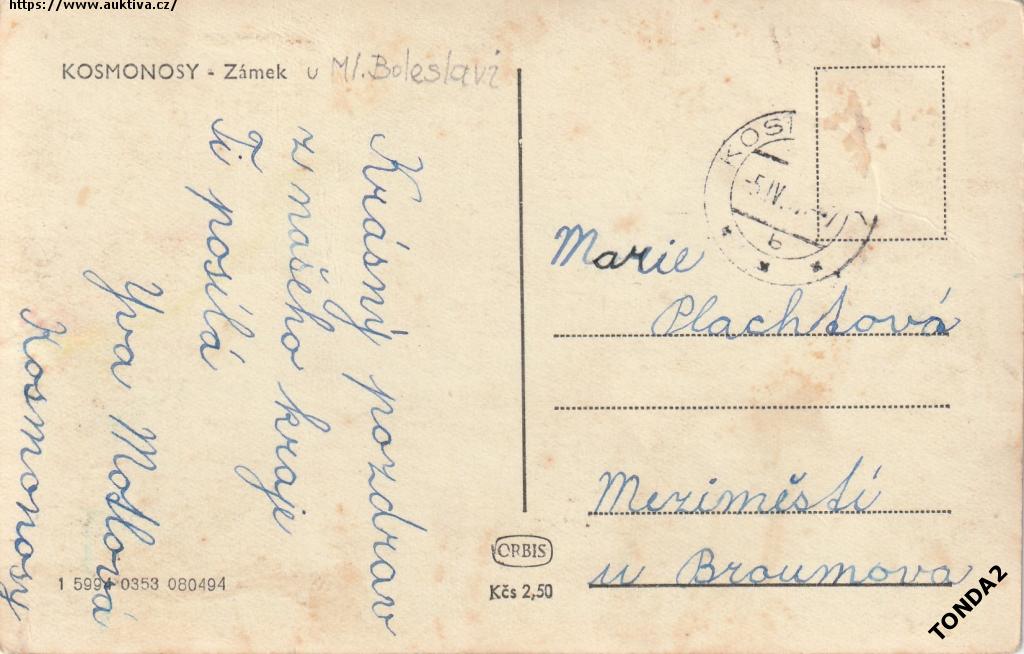 https://www.auktiva.cz/
KOSMONOSY - Zámek u Ml. Boleslavi
Krásný pozdrav
z našeho kraje
Ti posílá
Yva Motlová
Kosmonosy
1 5994 0353 080494
ORBIS
Kčs 2,50
KOS
-5.IV.
b
Marie
Plachtová
Meziměstí
u Broumova
TONDA2